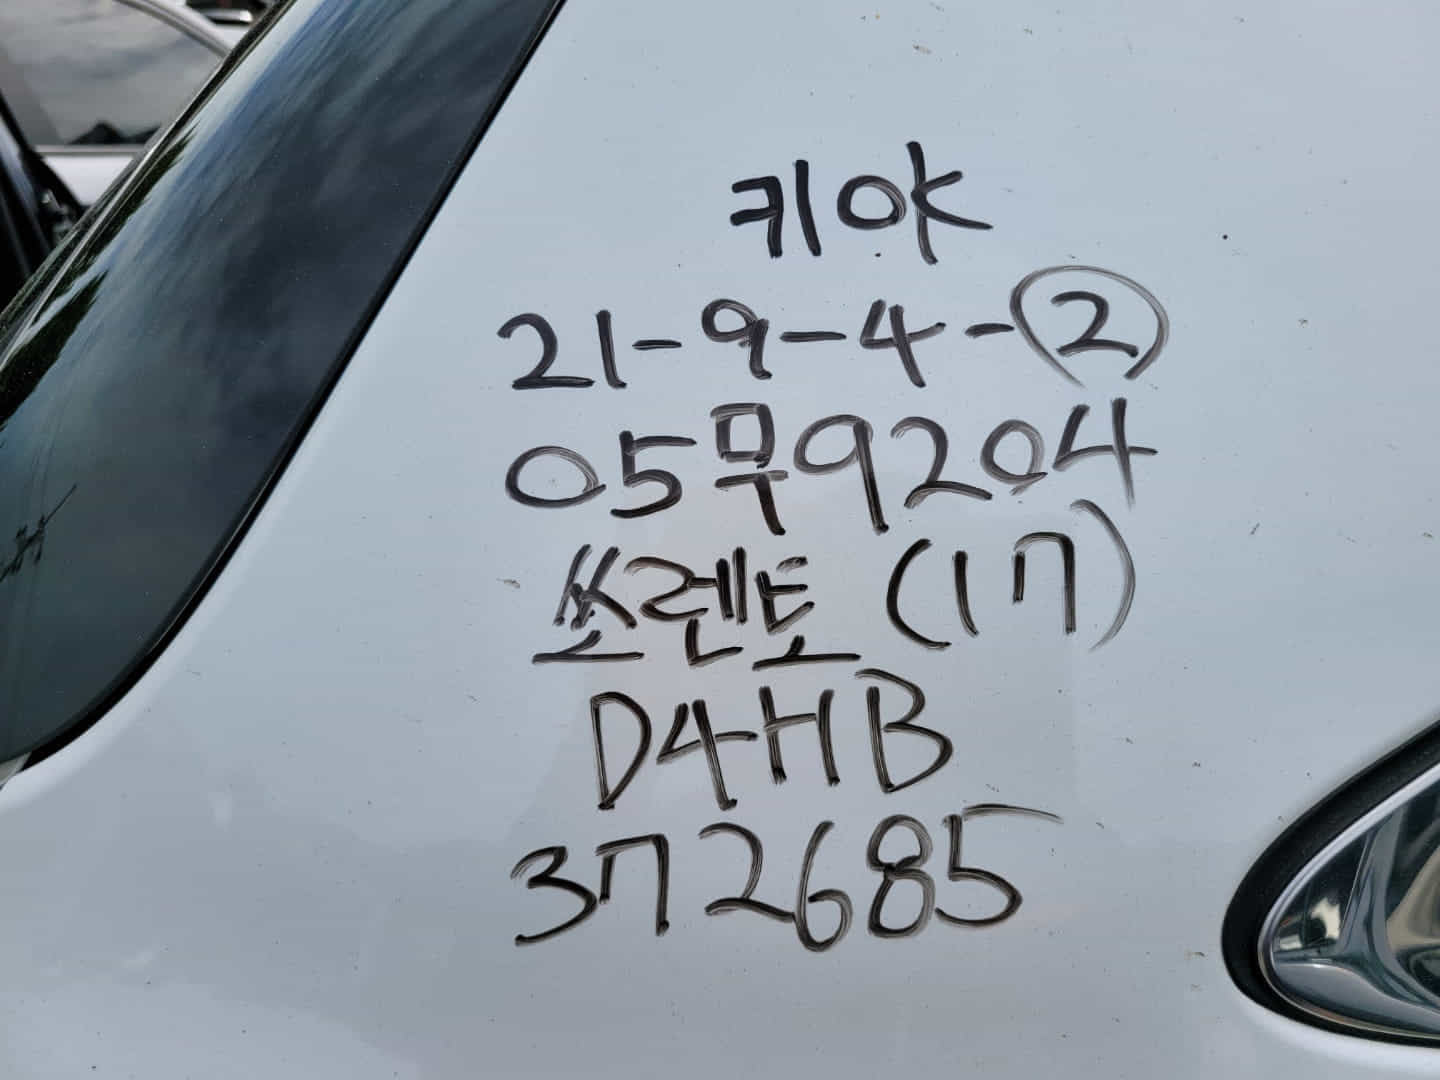 키아
21-9-4-②
05무9204
쏘렌토 (17)
D4HB
372685